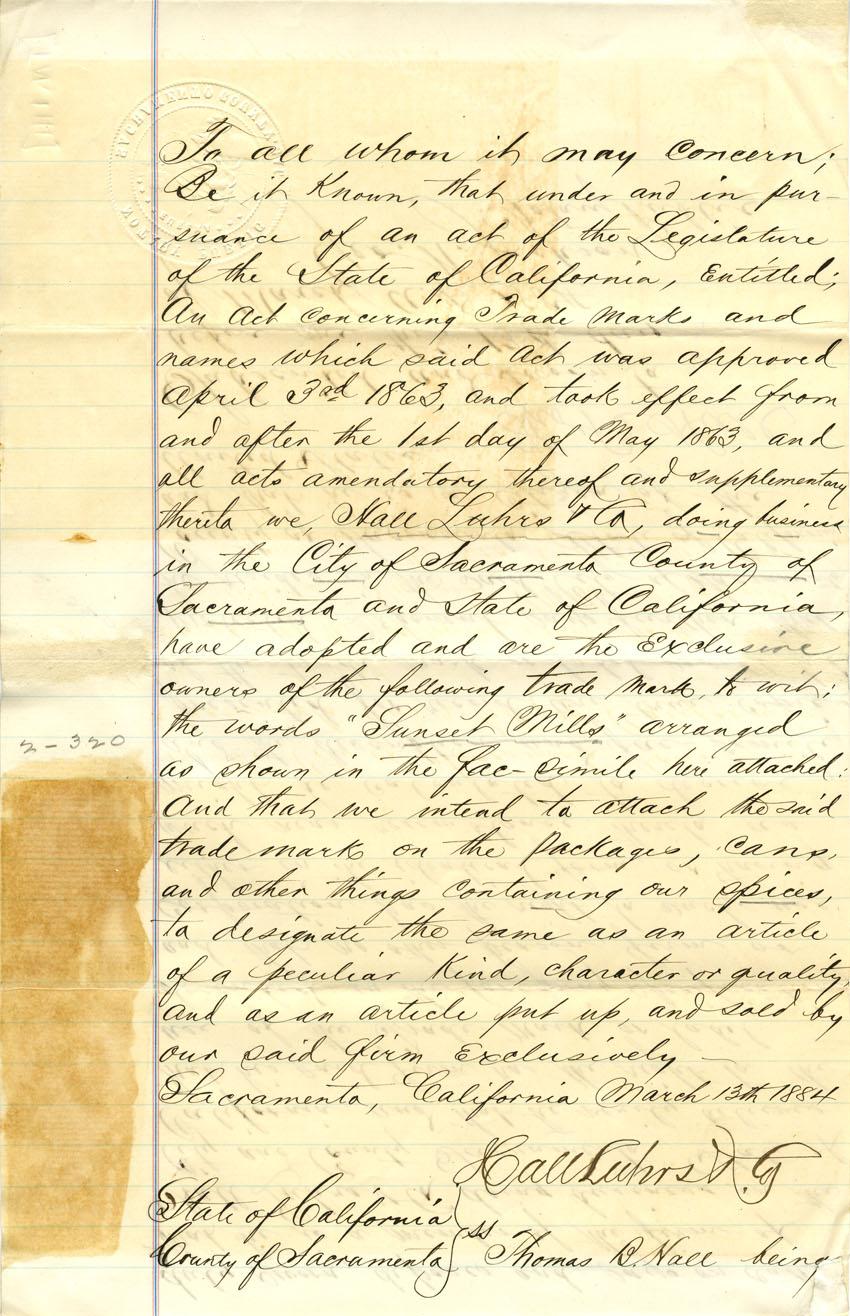 To all whom it may concern;
Be it Known, that under and in pur-
suance of an act of the Legislature
of the State of California, Entitled;
An Act concerning Trade Marks and
names which said Act was approved
April 3rd 1863, and took effect from
and after the 1st day of May 1863, and
all acts amendatory thereof and supplementary
thereto we, Hall Luhrs & Co, doing business
in the City of Sacramento County of
Sacramento and State of California,
have adopted and are the Exclusive
owners of the following trade mark, to wit;
the words "Sunset Mills" arranged
as shown in the fac-simile here attached:
And that we intend to attach the said
trade mark on the Packages, cans,
and other things containing our spices,
to designate the same as an article
of a peculiar Kind, character or quality,
and as an article put up, and sold by
our said firm Exclusively —
Sacramento, California March 13th 1884
Hall Luhrs & Co
State of California
County of Sacramento } ss Thomas B. Hall being
2-320